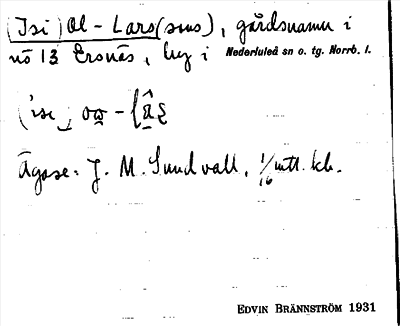 (Isi) Ol-Lars(sens), gårdsnamn i
nö 13 Ersnäs, by i Nederluleå sn o. tg. Norrb. l.
Ägare: J. M. Sundvall, 1/16 mtl. kb.
EDVIN BRÄNNSTRÖM 1931